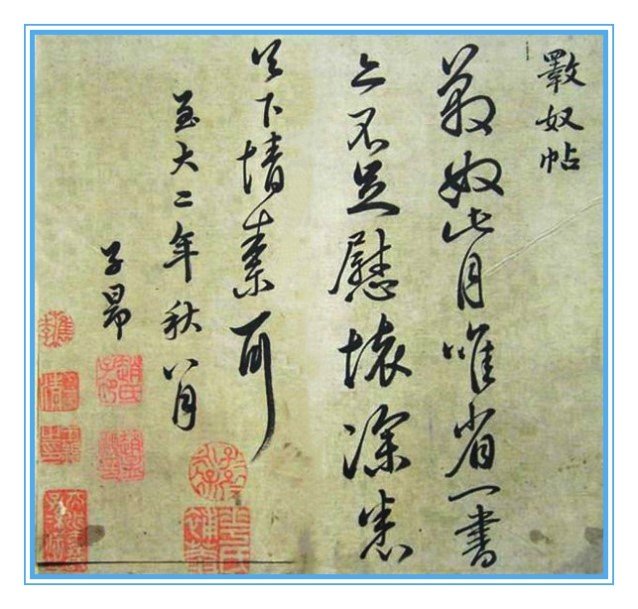 奴帖
奴比月唯省一書
亦不足慰懷深悉
足下情素耳
至大二年秋八月
子昂